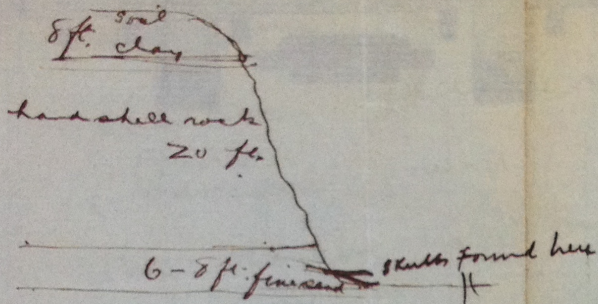 soil
8 ft. clay
hard shell rock
20 ft.
6 - 8 ft. fine sand
skulls found here